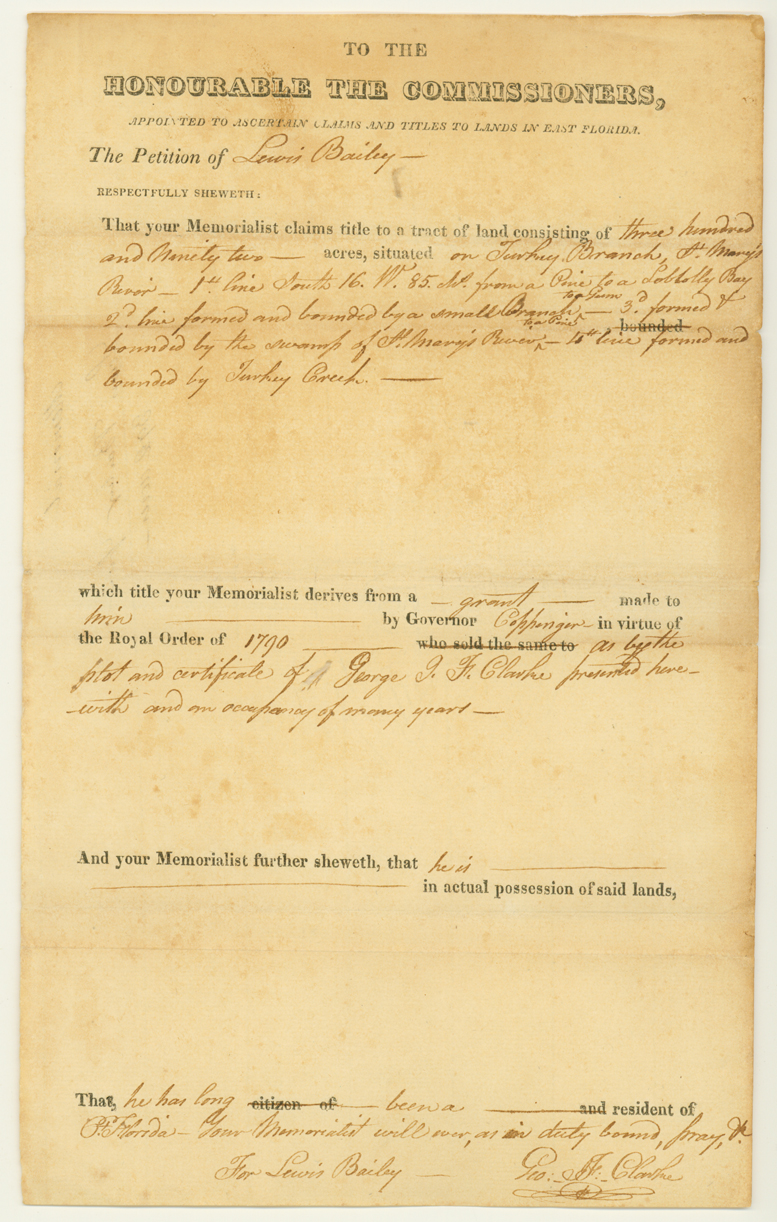 TO THE
HONOURABLE THE COMMISSIONERS,
APPOINTED TO ASCERTAIN CLAIMS AND TITLES TO LANDS IN EAST FLORIDA.
The Petition of Lewis Bailey —
RESPECTFULLY SHEWETH:
That your Memorialist claims title to a tract of land consisting of three hundred
and Ninety two — acres, situated on Turkey Branch, St. Mary's
River — 1st line South 16. W. 85. chs. from a Pine to a Loblolly Bay
to a Gum
2d. line formed and bounded by a small Branch ^ — 3d. formed &
to a Pine bounded
bounded by the swamp of St. Mary's River ^ — 4th line formed and
bounded by Turkey Creek. —
which title your Memorialist derives from a — grant — made to
him — by Governor Coppinger — in virtue of
the Royal Order of 1790 — who sold the same to as by the
plot and certificate of George J. F. Clarke presented here-
-with and an occupancy of many years —
And your Memorialist further sheweth, that he is —
— in actual possession of said lands,
That, he has long citizen of — been a — and resident of
Et. Florida — Your Memorialist will ever, as in duty bound, pray, &c.
For Lewis Bailey — Geo: J. F. Clarke